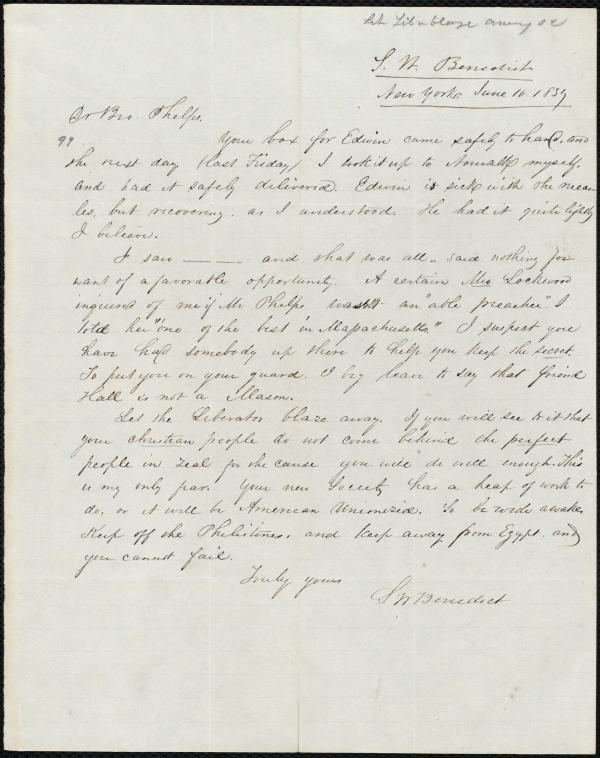 Let Lib blaze away
S. W. Benedict
New York June 10. 1839
Dr Bro. Phelps.
99
Your box for Edwin came safely to hand, and
the next day (last Friday) I took it up to Norwalk myself,
and had it safely delivered. Edwin is sick with the meas-
les, but recovering, as I understood. He had it quite lightly
I believe.
I saw ——— and what was all—said nothing for
want of a favorable opportunity. A certain Mrs Lockwood
inquired of me if Mr Phelps wasn't an "able preacher". I
told her "one of the best in Massachusetts." I suspect you
have had somebody up there to help you keep the secret.
To put you on your guard, I beg leave to say that friend
Hall is not a Mason.
Let the Liberator blaze away. If you will see to it that
your christian people do not come behind the perfect
people in zeal for the cause you will do well enough. This
is my only fear. Your new Society has a heap of work to
do, or it will be American Unionized. So be wide awake,
Keep off the Philistines, and keep away from Egypt. and
you cannot fail.
Truly yours
S W Benedict